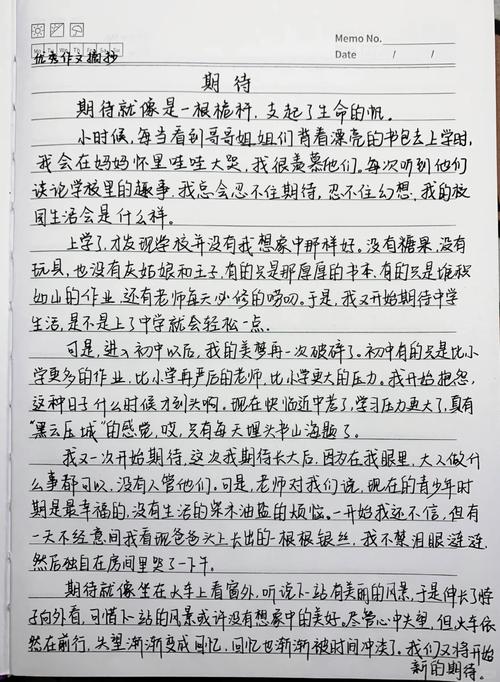 Memo No.
Mo Tu We Th Fr Sa Su
Date / /
优秀作文摘抄
期待
期待就像是一根桅杆，支起了生命的帆。
小时候，每当看到哥哥姐姐们背着漂亮的书包去上学时，
我会在妈妈怀里哇哇大哭，我很羡慕他们。每次听到他们
谈论学校里的趣事，我总会忍不住期待，忍不住幻想，我的校
园生活会是什么样。
上学了，才发现学校并没有我想象中那样好。没有糖果，没有
玩具，也没有灰姑娘和王子，有的只是那厚厚的书本，有的只是堆积
如山的作业，还有老师每天必修的唠叨。于是，我又开始期待中学
生活，是不是上了中学就会轻松一点。
可是，进入初中以后，我的美梦再一次破碎了。初中有的只是比小
学更多的作业，比小学再严厉的老师，比小学更大的压力。我开始抱怨，
这种日子什么时候才到头啊。现在快临近中考了，学习压力更大了，真有
“黑云压城”的感觉，哎，只有每天埋头书山海题了。
我又一次开始期待，这次我期待长大后，因为在我眼里，大人做什
么事都可以，没有人管他们。可是，老师对我们说，现在的青少年时
期是最幸福的，没有生活的柴米油盐的烦恼。一开始我还不信，但有
一天不经意间我看现爸爸头上长出的一根根银丝，我不禁泪眼涟涟，
然后独自在房间里哭了一下午。
期待就像坐在火车上看窗外，听说下一站有美丽的风景，于是伸长了脖
子向外看，可惜下一站的风景或许没有想象中的美好。尽管心中失望，但火车依
然在前行，失望渐渐变成回忆，回忆也渐渐被时间冲淡了。我们又将开始
新的期待。